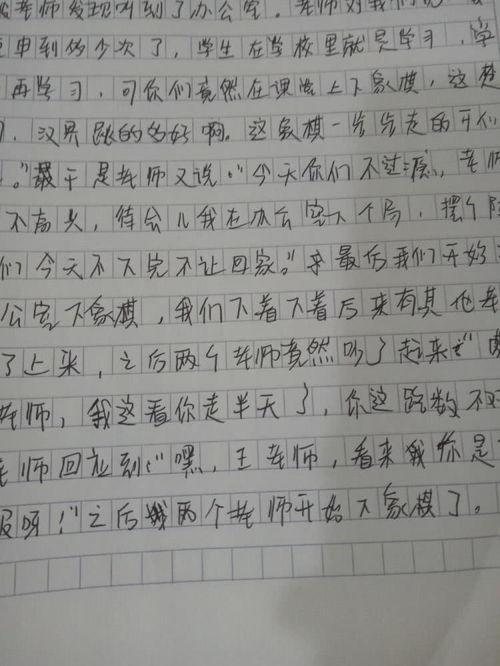 老师发现叫到了办公室。老师对我们说
申到多少次了，学生在学校里就是学习，学
再学习，可你们竟然在课堂上下象棋，这楚
汉界跳的多好啊。这象棋一步步走的
。"于是老师又说："今天你们不过瘾，老师
不高兴，待会儿我在办公室下个局，摆个
们今天不下完不让回家。"最后我们开始
公室下象棋，我们下着下着后来有其他老
了上来，之后两个老师竟然吵了起来："
老师，我这看你走半天了，你这路数不对
老师回应到："嘿，王老师，看来你是
服呀！"之后两个老师开始下象棋了。